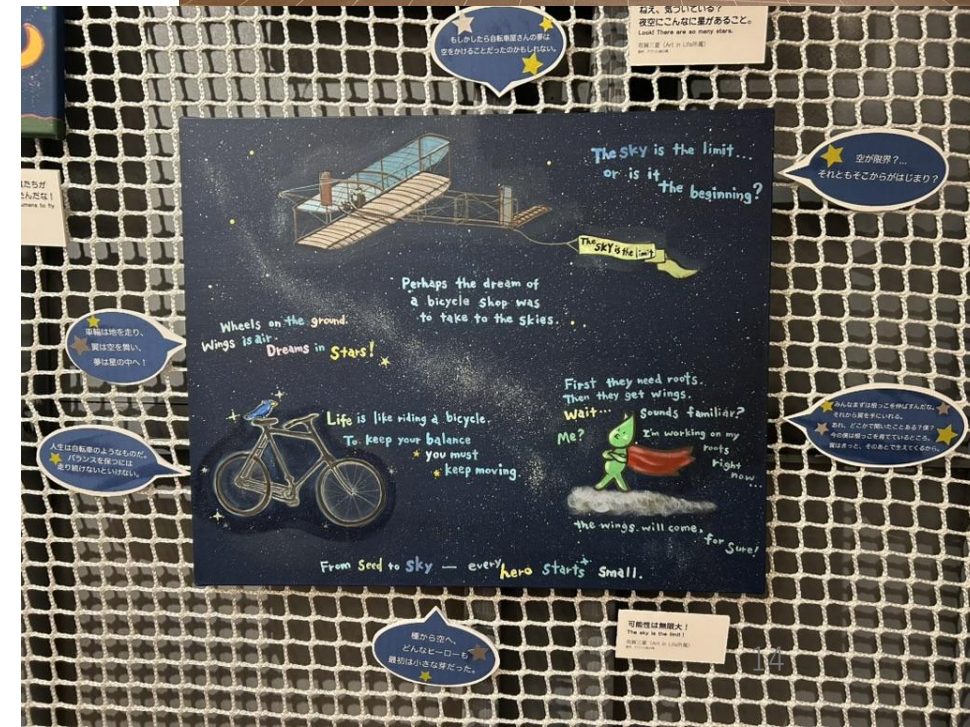 もしかしたら自転車屋さんの夢は
空をかけることだったのかもしれない。
ねえ、気づいている?
夜空にこんなに星があること。
Look! There are so many stars.
The sky is the limit...
or is it
the beginning?
空が限界?...
それともそこからがはじまり?
The SKY is the limit
Perhaps the dream of
a bicycle shop was
to take to the skies.
Wheels on the ground.
Wings is air.
Dreams in Stars!
車輪は地を走り、
翼は空を舞い、
夢は星の中へ!
Life is like riding a bicycle.
To keep your balance
you must
keep moving.
人生は自転車のようなものだ。
バランスを保つには
走り続けないといけない。
First they need roots.
Then they get wings.
Wait... Sounds familiar?
Me? I'm working on my
roots
right
now...
the wings will come,
for Sure!
みんなまずは根っこを伸ばすんだな。
それから翼を手にいれる。
あれ、どこかで聞いたことある?僕?
今の僕は根っこを育てているところ。
翼はきっと、そのあとで生えてくるから。
From Seed to SKY — every hero starts small.
種から空へ、
どんなヒーローも
最初は小さな芽だった。
可能性は無限大!
The sky is the limit!
14